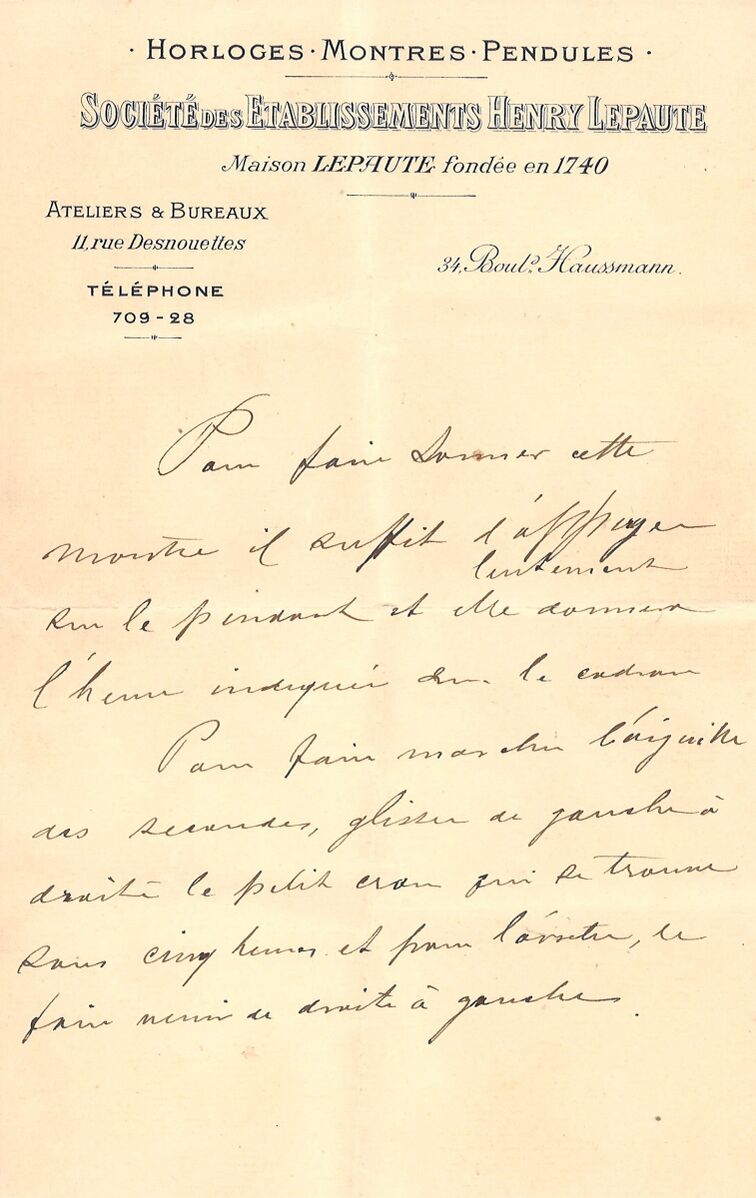 · HORLOGES · MONTRES · PENDULES ·
SOCIÉTÉ DES ETABLISSEMENTS HENRY LEPAUTE
Maison LEPAUTE fondée en 1740
ATELIERS & BUREAUX
11, rue Desnouettes
TÉLÉPHONE
709-28
34, Boulᵈ. Haussmann.
Pour faire sonner cette
montre il suffit d'appuyer
lentement
sur le pendant et elle donnera
l'heure indiquée sur le cadran
Pour faire marcher l'aiguille
des secondes, glisser de gauche à
droite le petit cran qui se trouve
sous cinq heures et pour l'arrêter, le
faire venir de droite à gauche.